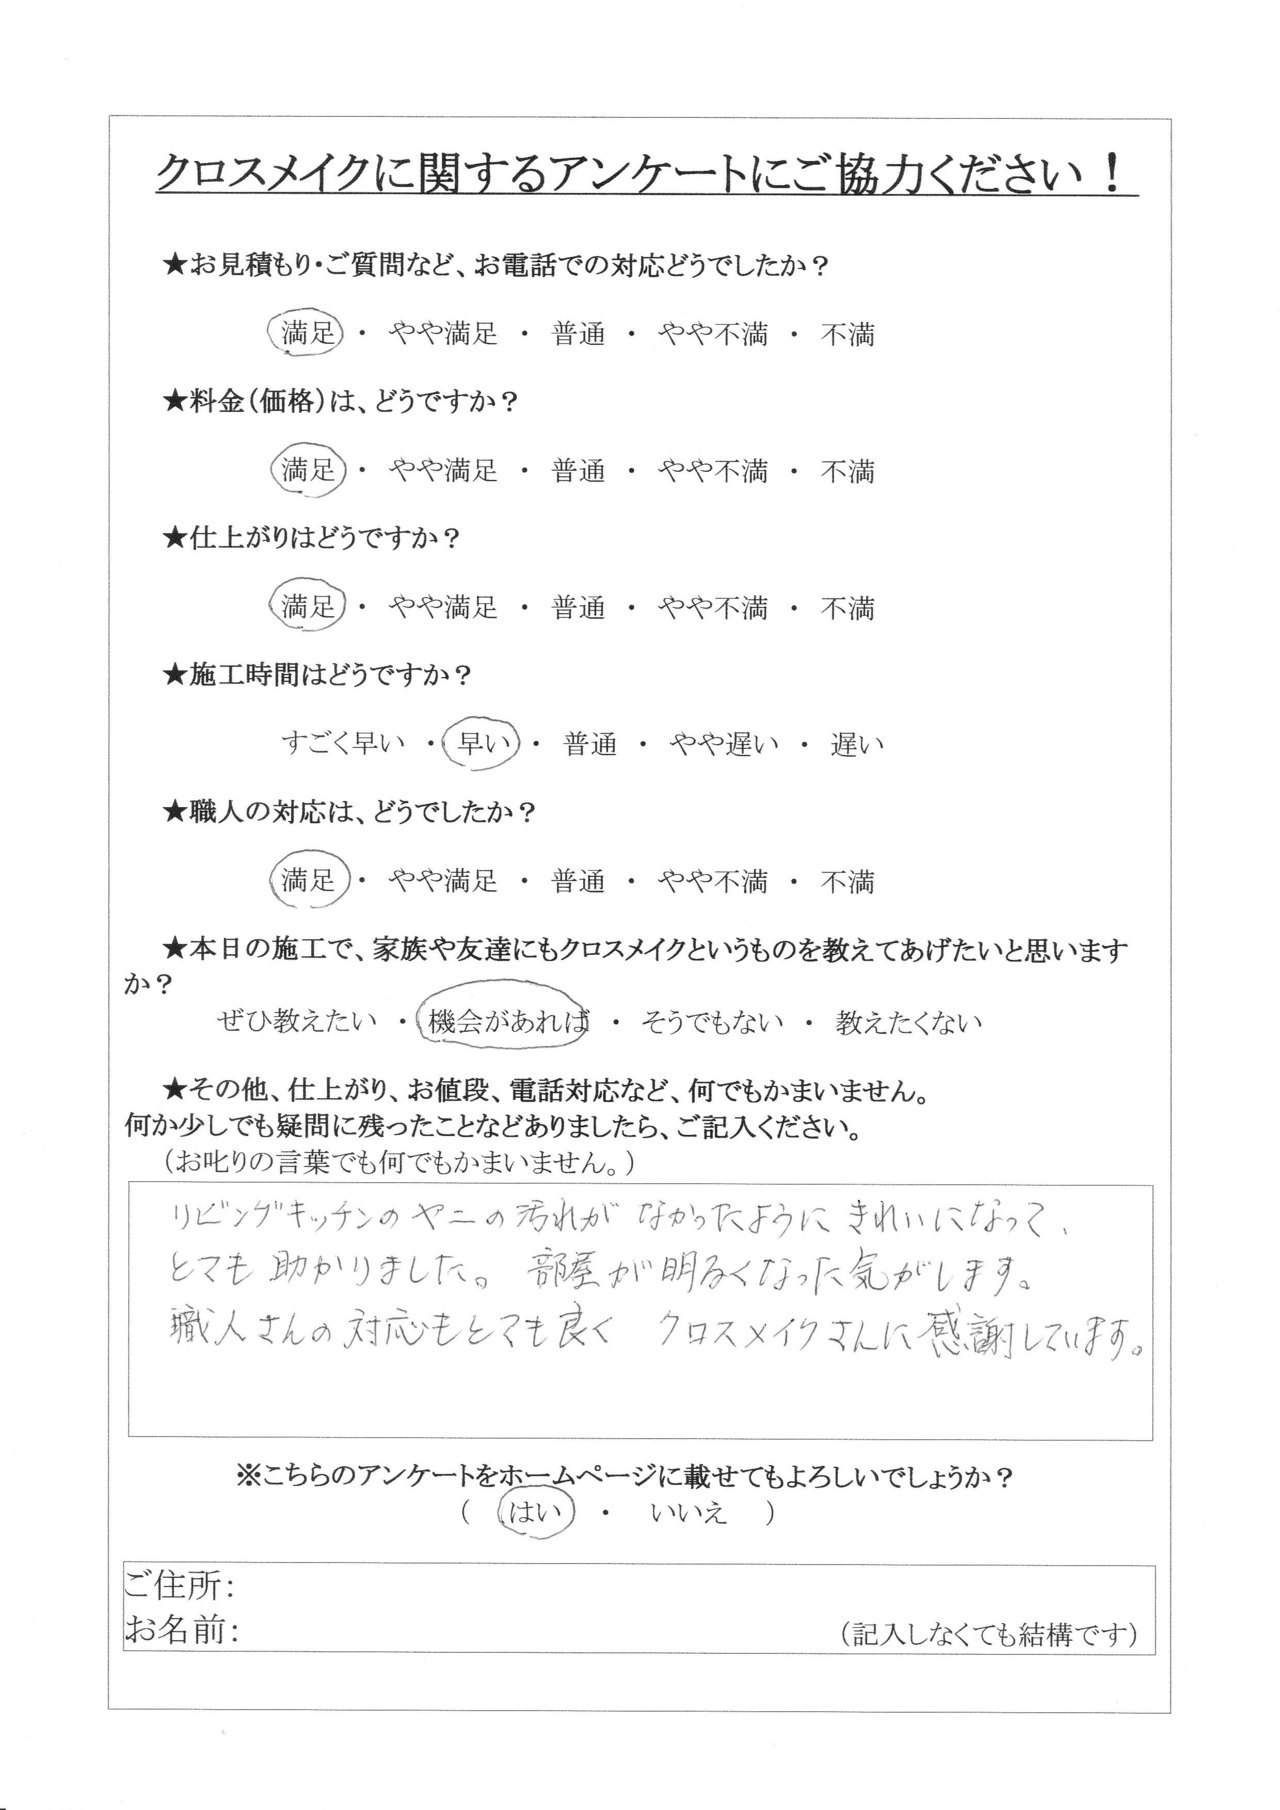 クロスメイクに関するアンケートにご協力ください！
★お見積もり・ご質問など、お電話での対応どうでしたか？
満足 ・ やや満足 ・ 普通 ・ やや不満 ・ 不満
★料金（価格）は、どうですか？
満足 ・ やや満足 ・ 普通 ・ やや不満 ・ 不満
★仕上がりはどうですか？
満足 ・ やや満足 ・ 普通 ・ やや不満 ・ 不満
★施工時間はどうですか？
すごく早い ・ 早い ・ 普通 ・ やや遅い ・ 遅い
★職人の対応は、どうでしたか？
満足 ・ やや満足 ・ 普通 ・ やや不満 ・ 不満
★本日の施工で、家族や友達にもクロスメイクというものを教えてあげたいと思います
か？
ぜひ教えたい ・ 機会があれば ・ そうでもない ・ 教えたくない
★その他、仕上がり、お値段、電話対応など、何でもかまいません。
何か少しでも疑問に残ったことなどありましたら、ご記入ください。
（お叱りの言葉でも何でもかまいません。）
リビングキッチンのヤニの汚れがなかったようにきれいになって、
とても助かりました。部屋が明るくなった気がします。
職人さんの対応もとても良く クロスメイクさんに感謝しています。
※こちらのアンケートをホームページに載せてもよろしいでしょうか？
（ はい ・ いいえ ）
ご住所：
お名前： （記入しなくても結構です）